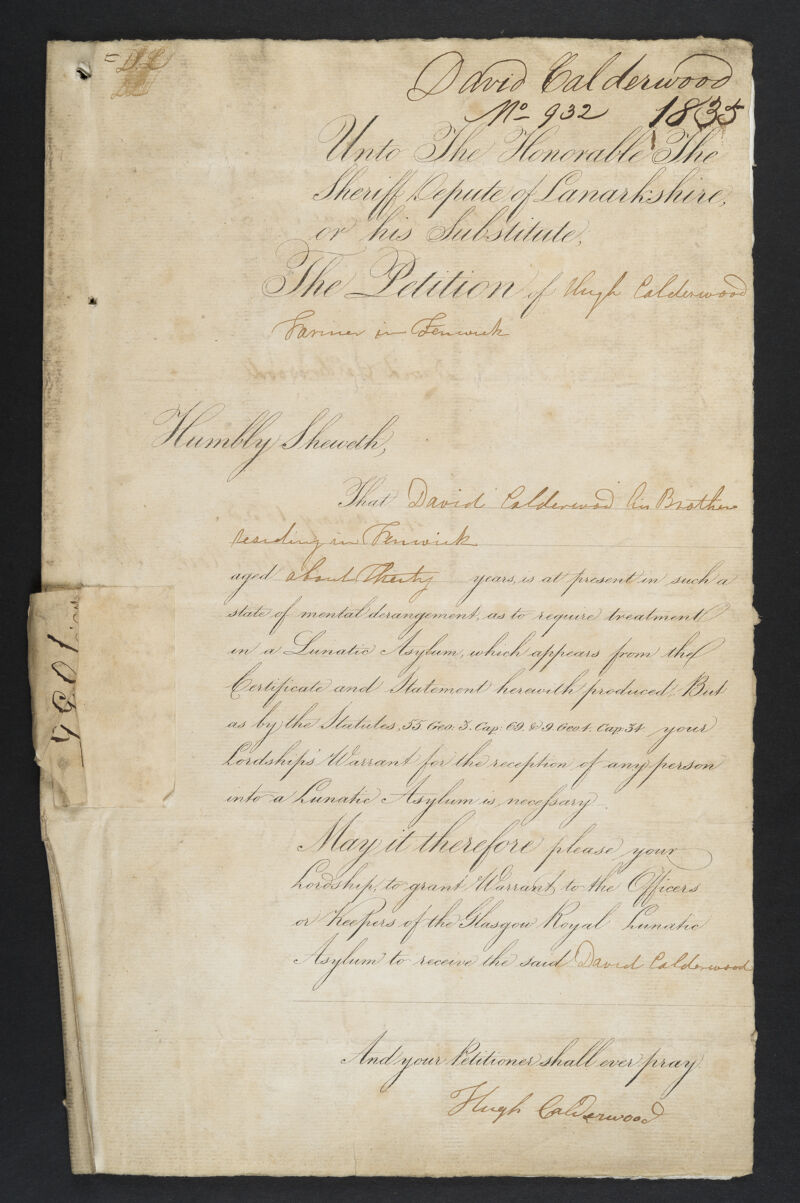 David Calderwood
No 932 1835
Unto The Honorable The
Sheriff Depute of Lanarkshire,
or his Substitute,
The Petition of Hugh Calderwood
Farmer in Fenwick
Humbly Sheweth,
That David Calderwood his Brother
residing in Fenwick
aged about Therty years, is at present in such a
state of mental derangement, as to require treatment
in a Lunatic Asylum, which appears from the
Certificate and Statement herewith produced. But
as by the Statutes, 55 Geo: 3. Cap: 69 & 9 Geo 4. Cap: 34 your
Lordship's Warrant for the reception of any person
into a Lunatic Asylum is, necessary.
May it therefore please your
Lordship, to grant Warrant, to the Officers
or Keepers of the Glasgow Royal Lunatic
Asylum to receive the said David Calderwood
And your Petitioner shall ever pray.
Hugh Calderwood